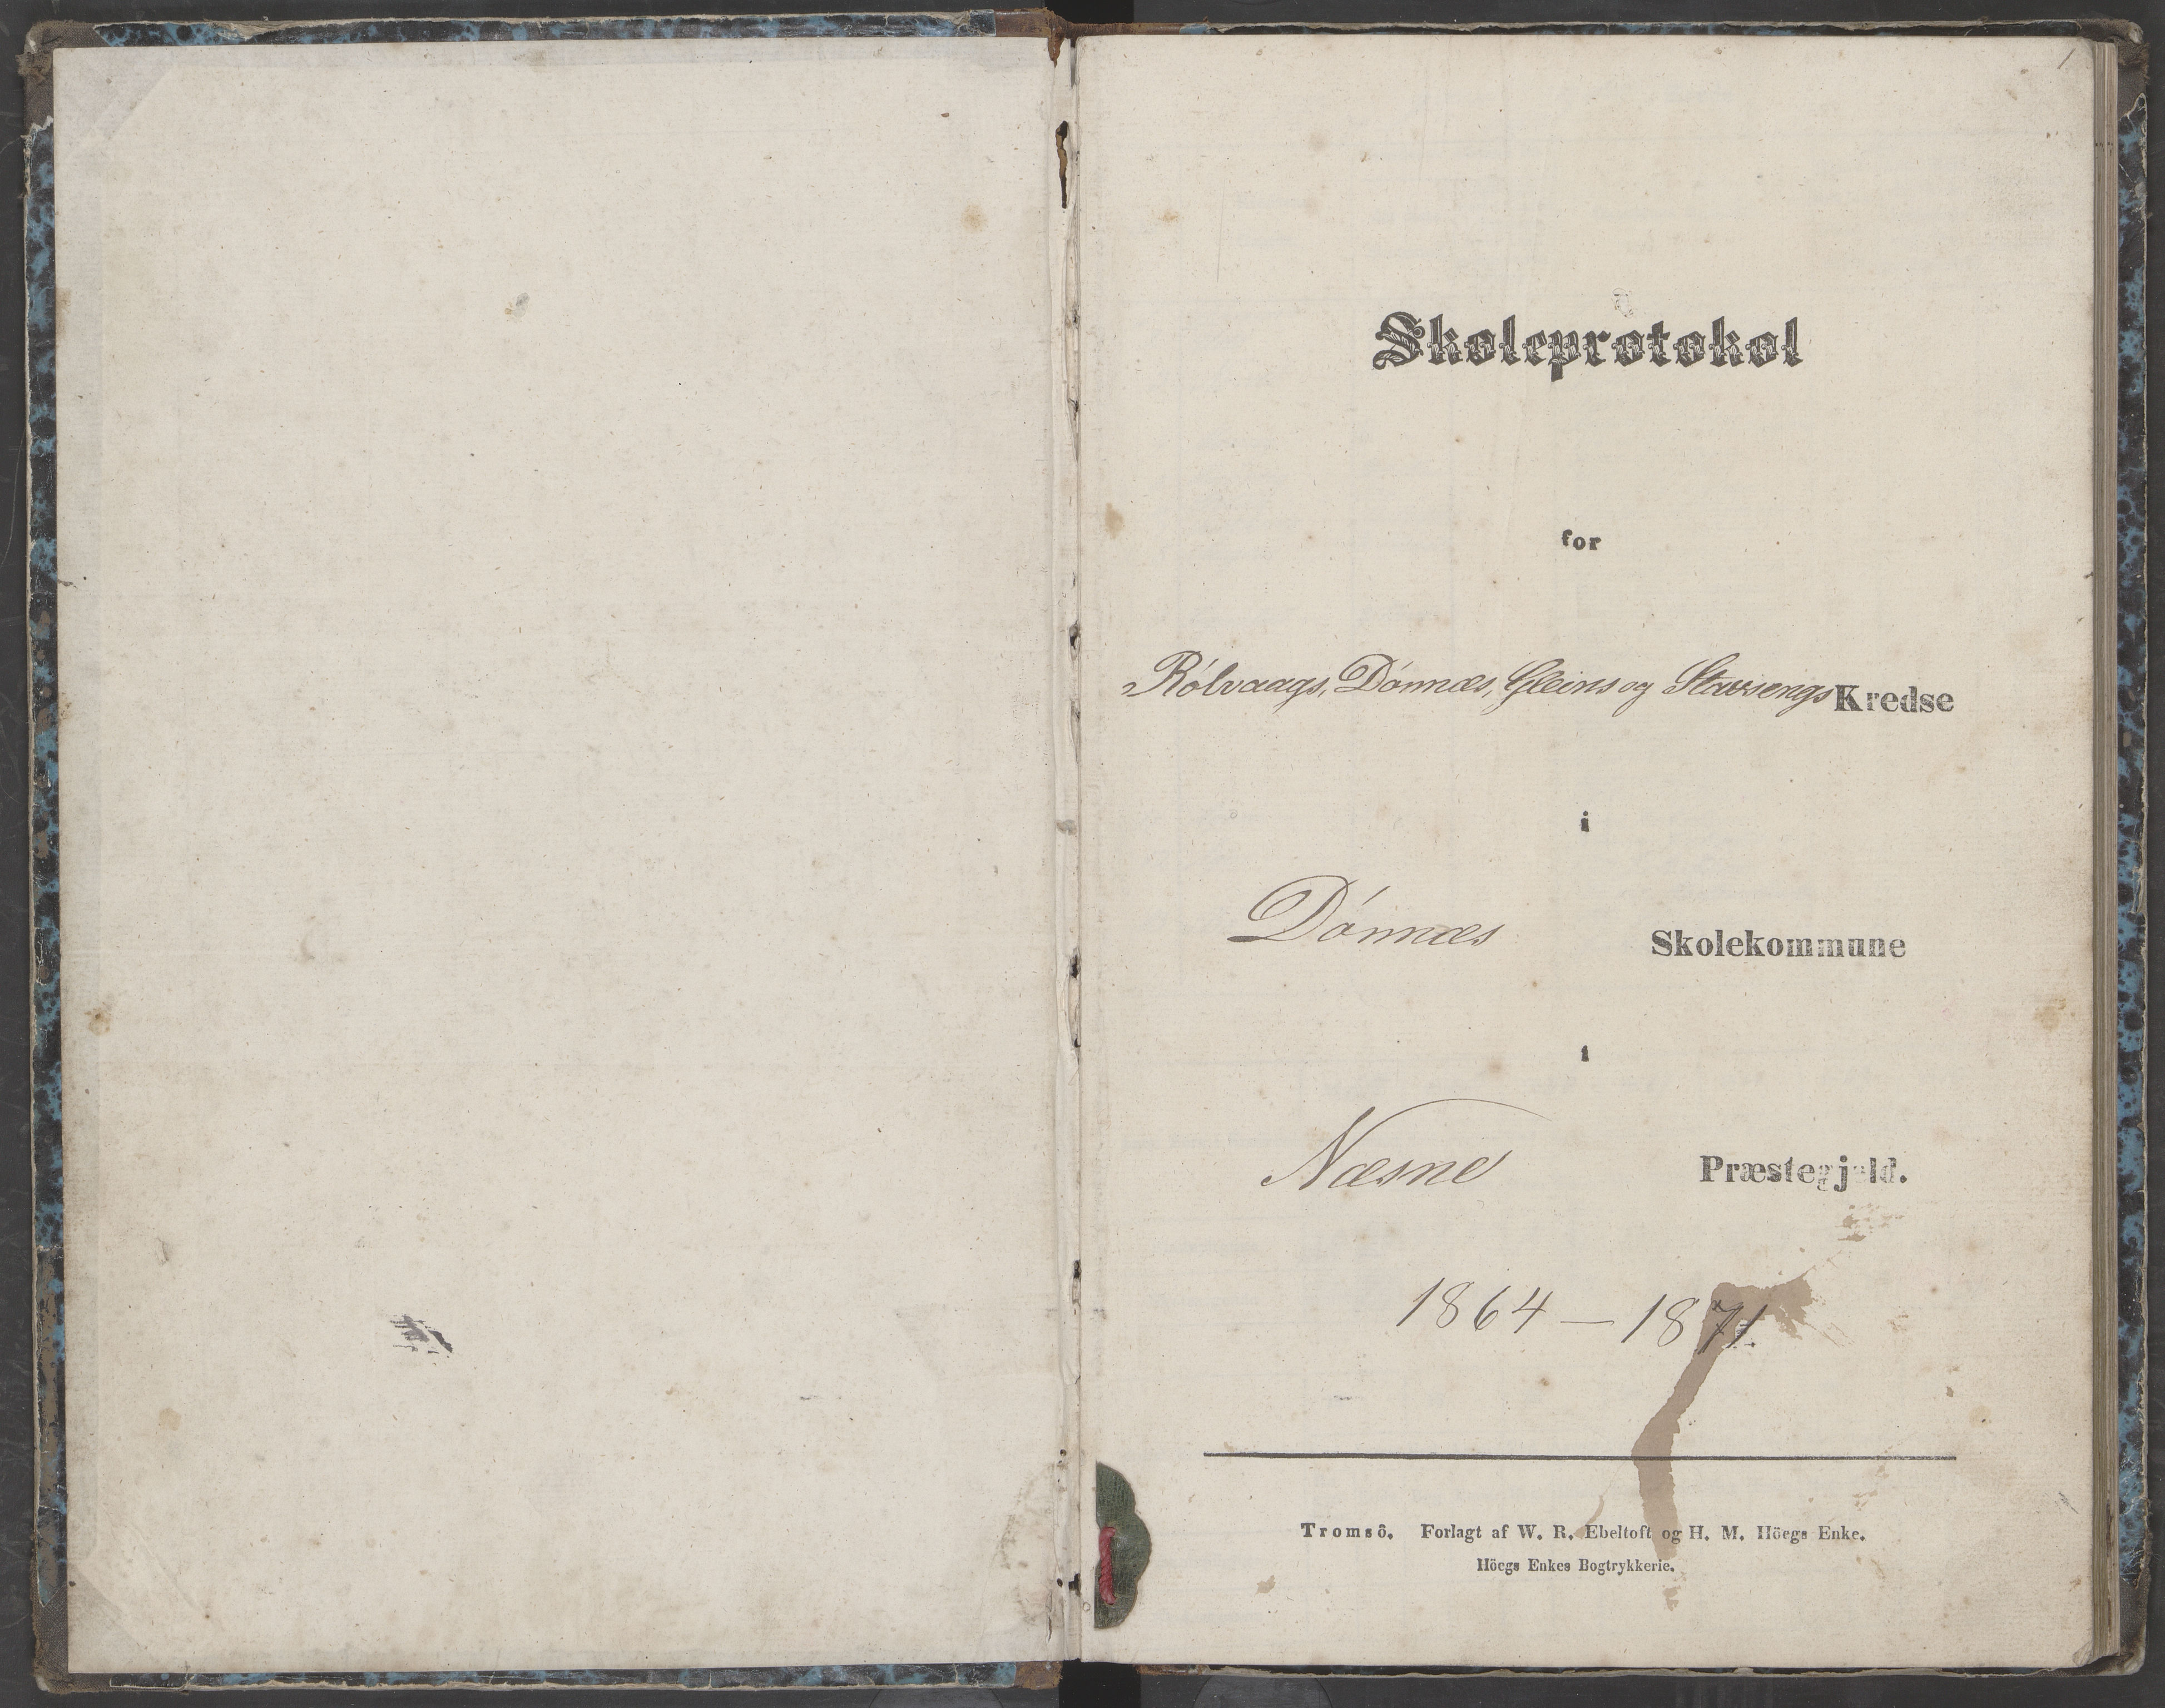 1
Skoleprotokol
for
Rólvaags, Dónnæs, Gleins og Stavsengs Kredse
i
Dónnæs Skolekommune
i
Næsne Præstegjeld.
1864 – 1871.
Tromsô. Forlagt af W. R. Ebeltoft og H. M. Höegs Enke.
Höegs Enkes Bogtrykkerie.